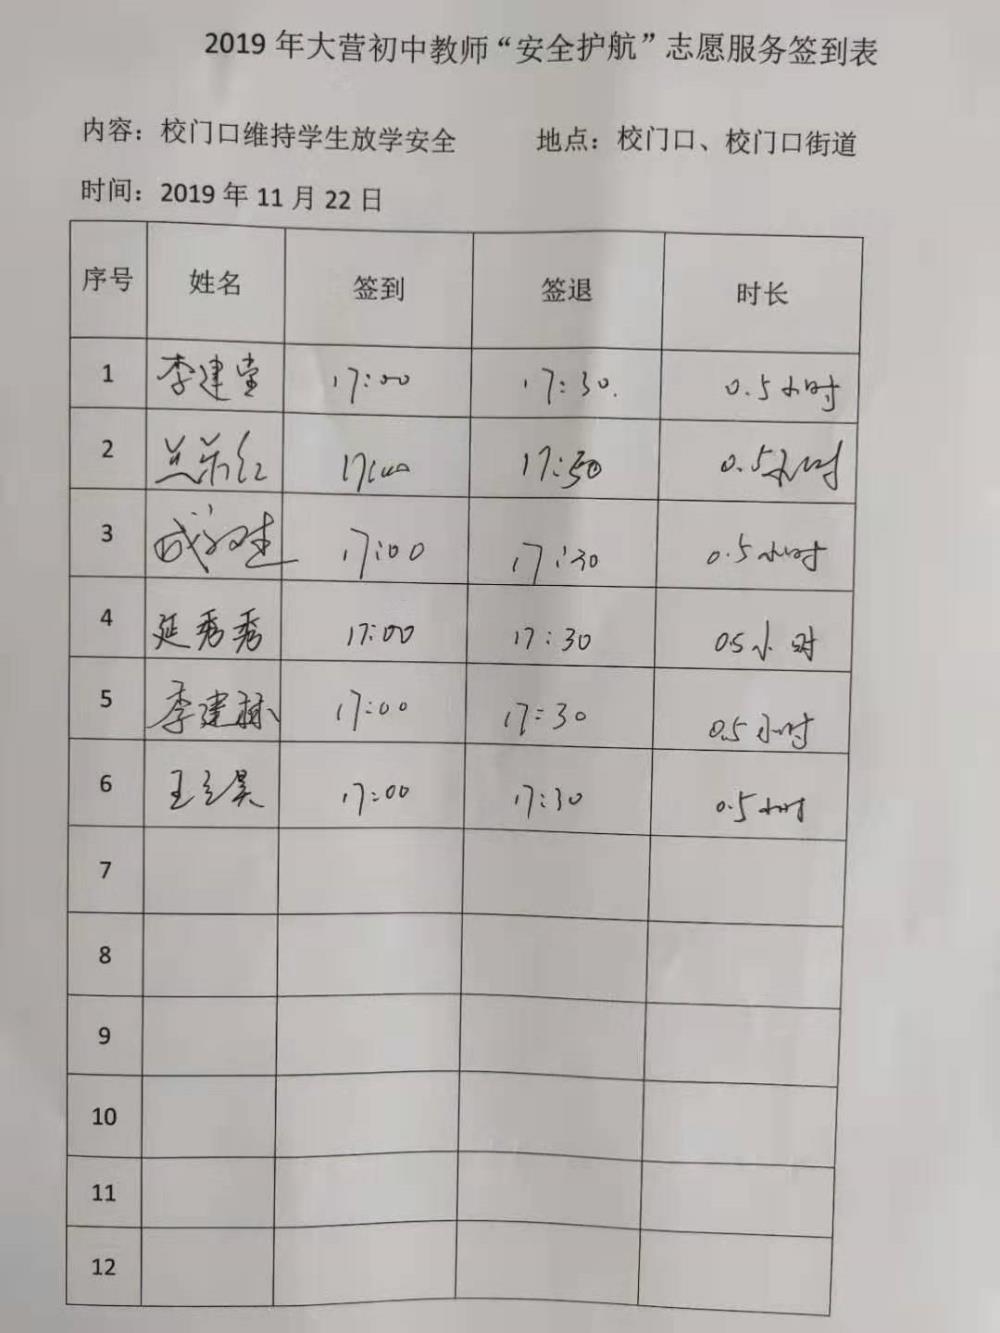 2019 年大营初中教师“安全护航”志愿服务签到表
内容：校门口维持学生放学安全 地点：校门口、校门口街道
时间：2019 年 11 月 22 日
序号 姓名 签到 签退 时长
1 李建堂 17:00 17:30. 0.5小时
2 兰 红 17:00 17:30 0.5小时
3 成 生 17:00 17:30 0.5小时
4 延秀秀 17:00 17:30 05小时
5 李建林 17:00 17:30 0.5小时
6 王立昊 17:00 17:30 0.5小时
7
8
9
10
11
12